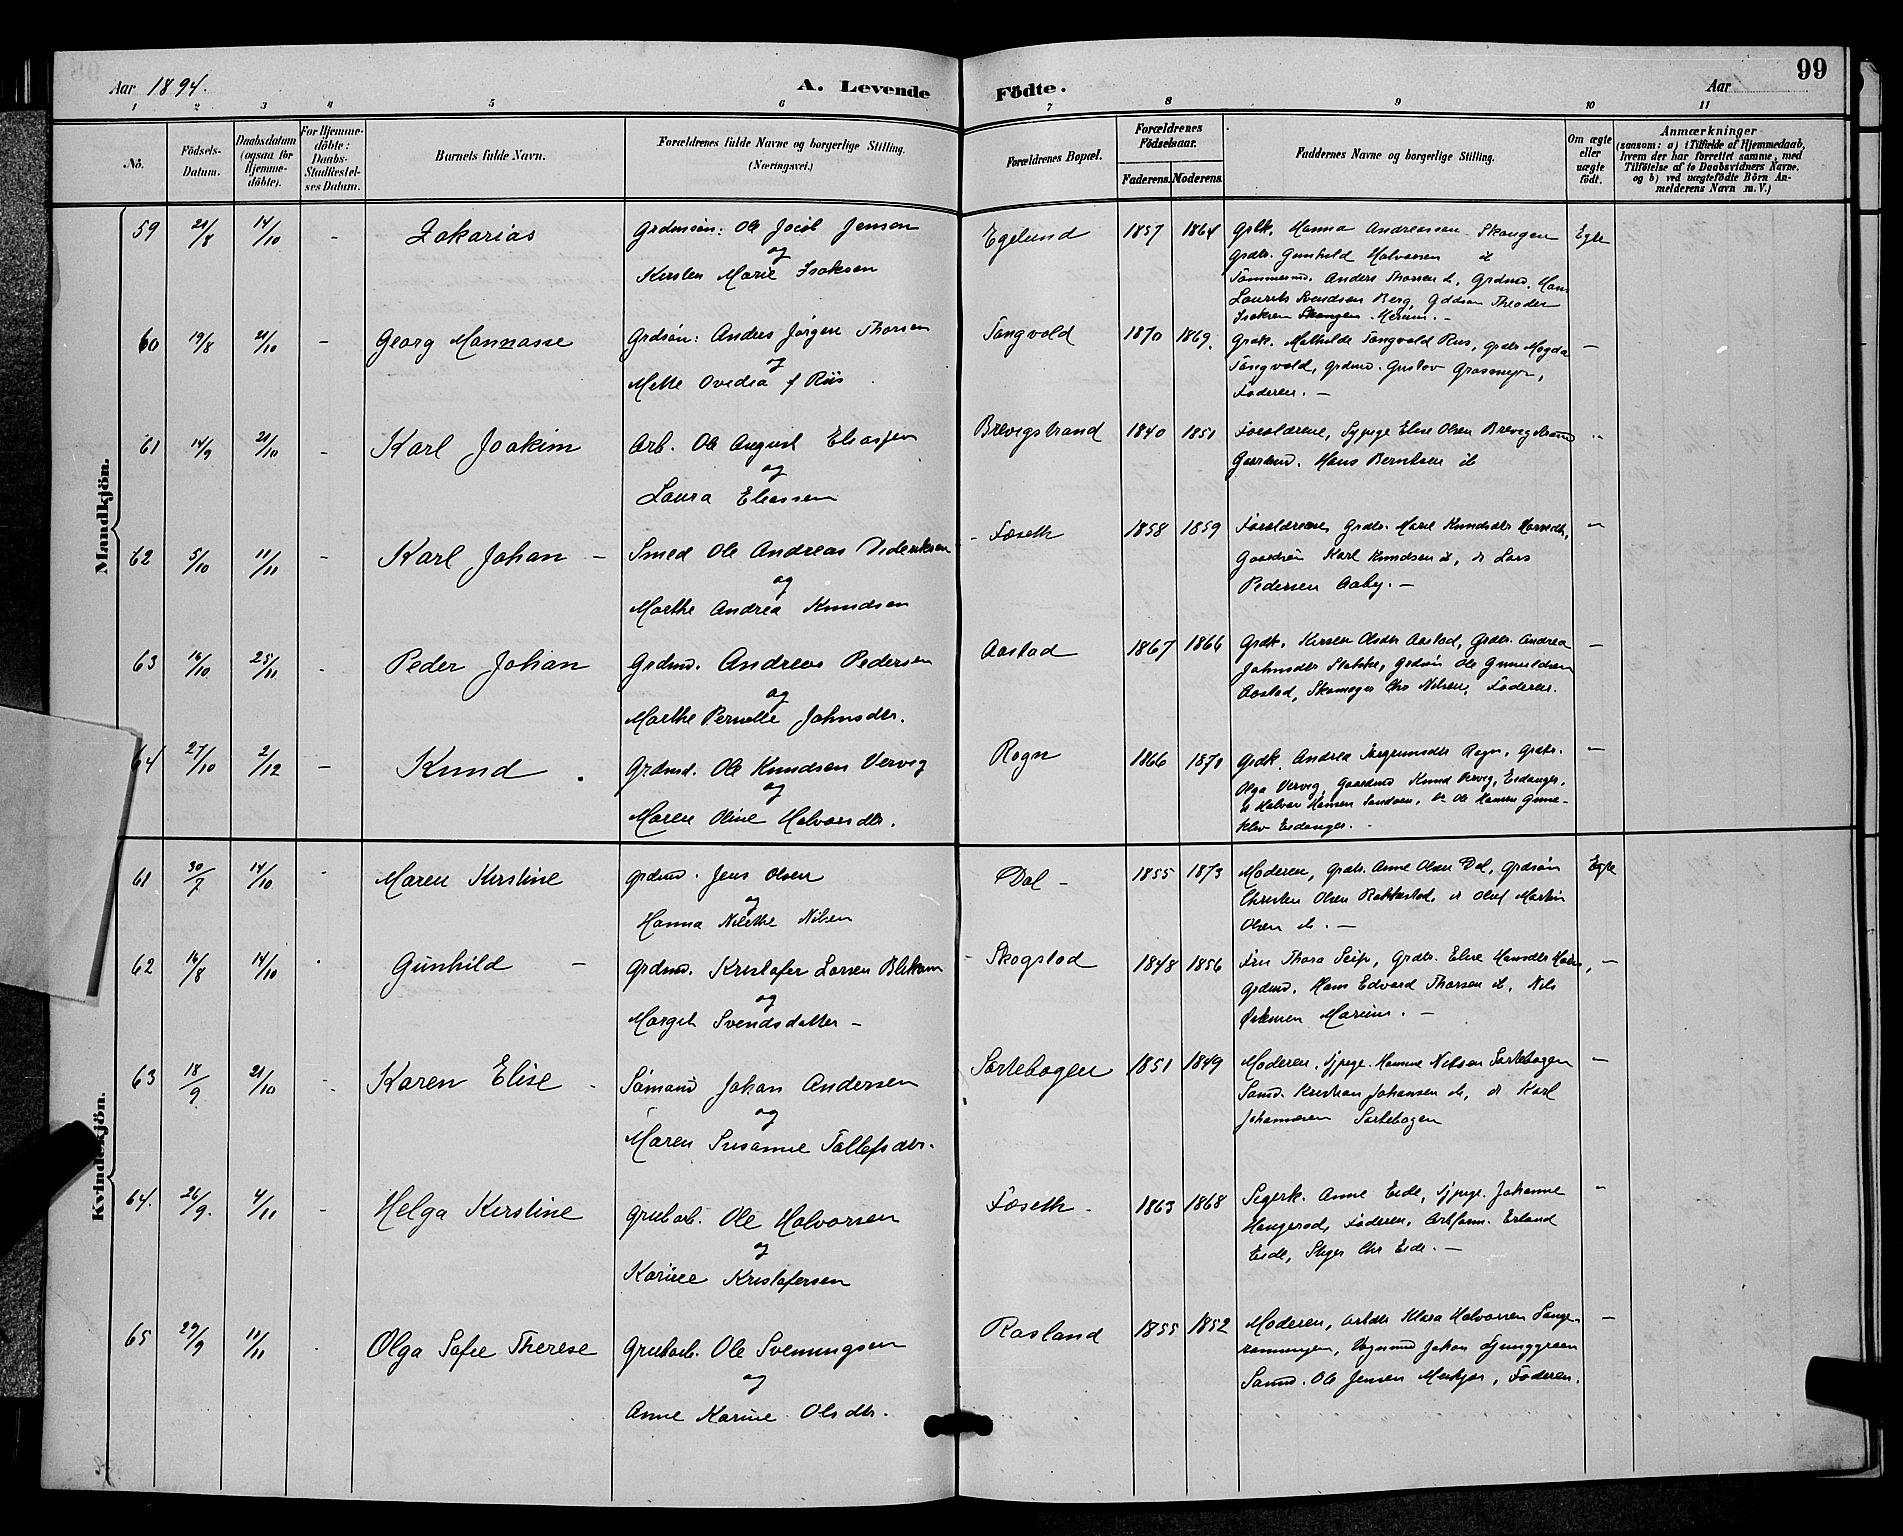 99
Aar 1894.
A. Levende Födte.
Aar
1 2 3 4 5 6 7 8 9 10 11
Nō.
Födsels-Datum.
Daabsdatum (ogsaa for Hjemme-döbte).
For Hjemme-döbte: Daabs-Stadfæstel-ses Datum.
Barnets fulde Navn.
Forældrenes fulde Navne og borgerlige Stilling. (Næringsvei.)
Forældrenes Bopæl.
Forældrenes Födselsaar.
Faderens. Moderens.
Faddernes Navne og borgerlige Stilling.
Om ægte eller uægte födt.
Anmærkninger
(saasom: a) i Tilfælde af Hjemmedaab,
hvem der har forrettet samme, med
Tilföielse af to Daabsvidners Navne.
og b) ved uægtefödte Börn An-
melderens Navn m. V.)
Mandkjön.
59 21/8 14/10 - Zakarias
Grdmsøn: Ole Jocob Jensen
og
Kirsten Marie Isaksen
Egelund 1857 1864
Grlk. Hanna Andreassen Skougen
Grdtr. Gunhild Halvorsen
Tømmermd. Anders Thorsen Grdmd. Hans
Laurits Svendsen Berg, Theodor
Isaksen
Egte
60 19/8 21/10 - Georg Mannasse
Grdsön: Anders Jørgen Thorsen
og
Mette Ovedia f Riis
Tangvold 1870 1869.
Mathilde Tangvald Riis, Grdtr Magda
Tangvold, Grdmd. Gustav
Faderen. -
-
61 14/9 21/10 - Karl Joakim
Arb. Ole August Eliassen
og
Laura Eliassen
Brevigstrand 1840 1851
Forældrene, Sypige Elise Olsen Brevigstrand
Hans Berntsen
62 5/10 11/11 - Karl Johan -
Smed Ole Andreas Dideriksen
og
Marthe Andrea Knudsen
Foseth 1858 1859
Forældrene, Grdtr. Marie Knudsdtr
Gaardsøn Karl Knudsen Lars
Pedersen Aaby. -
63 16/10 25/11 - Peder Johan
Grdmd. Andreas Pedersen
og
Marthe Pernelle Johnsdtr.
Aastad 1867 1866
Grdk. Kirsten Olsdtr Aastad, Grdtr. Andrea
Johnsdtr Grdsön Ole
Aastad, Skomager Chr Nilsen, Faderen.
-
64 27/10 2/12 - Knud.
Grdmd. Ole Knudsen Vervig
og
Maren Oline Halvorsdtr.
Rogn 1866 1870
Grdk. Andrea Rogn, Grdtr.
Olga Vervig, Gaardmd Knud Vervig, Eidanger,
Halvor Hansen Ole Hansen
Eidanger. -
-
Kvindekjön.
61 30/7 14/10 - Maren Kirstine
Grdmd. Jens Olsen
og
Hanna Nilsen
Dal - 1855 1873
Moderen, Grdtr. Anne Olsen Dal, Grdsøn
Christen Olsen Olaf Martin
Olsen
Egte
62 16/8 14/10 Gunhild -
Grdmd. Kristofer Larsen
og
Margit Svendsdatter -
Skogstad 1848 1856
Thora Grdtr. Elise
Grdmd. Hans Edvard Thorsen Nils
-
63 18/9 21/10 - Karen Elise -
Sømand Johan Andersen
og
Maren Susanne Tollefsdtr.
Sortebogen 1851 1849
Moderen, Sypige. Hanne Nilsen Sortebogen
Sømd. Kristian Johansen Karl
Johannesen Sortebogen
-
64. 26/9. 4/11 - Helga Kirstine
Grubarb. Ole Halvorsen
og
Karine Kristofersen
Foseth - 1863 1868
Anne Eide, Sypige. Johanne
Haugerød, Faderen, Erland
Eide, Stiger Chr Eide. -
-
65 29/9 11/11 Olga Sofie Therese
Grubarb. Ole Svenningsen
og
Anne Karine Olsdtr.
Rosland 1855 1852
Moderen, Klara Halvorsen
Johan Ljunggreen
Sømd. Ole Jensen Faderen.
-